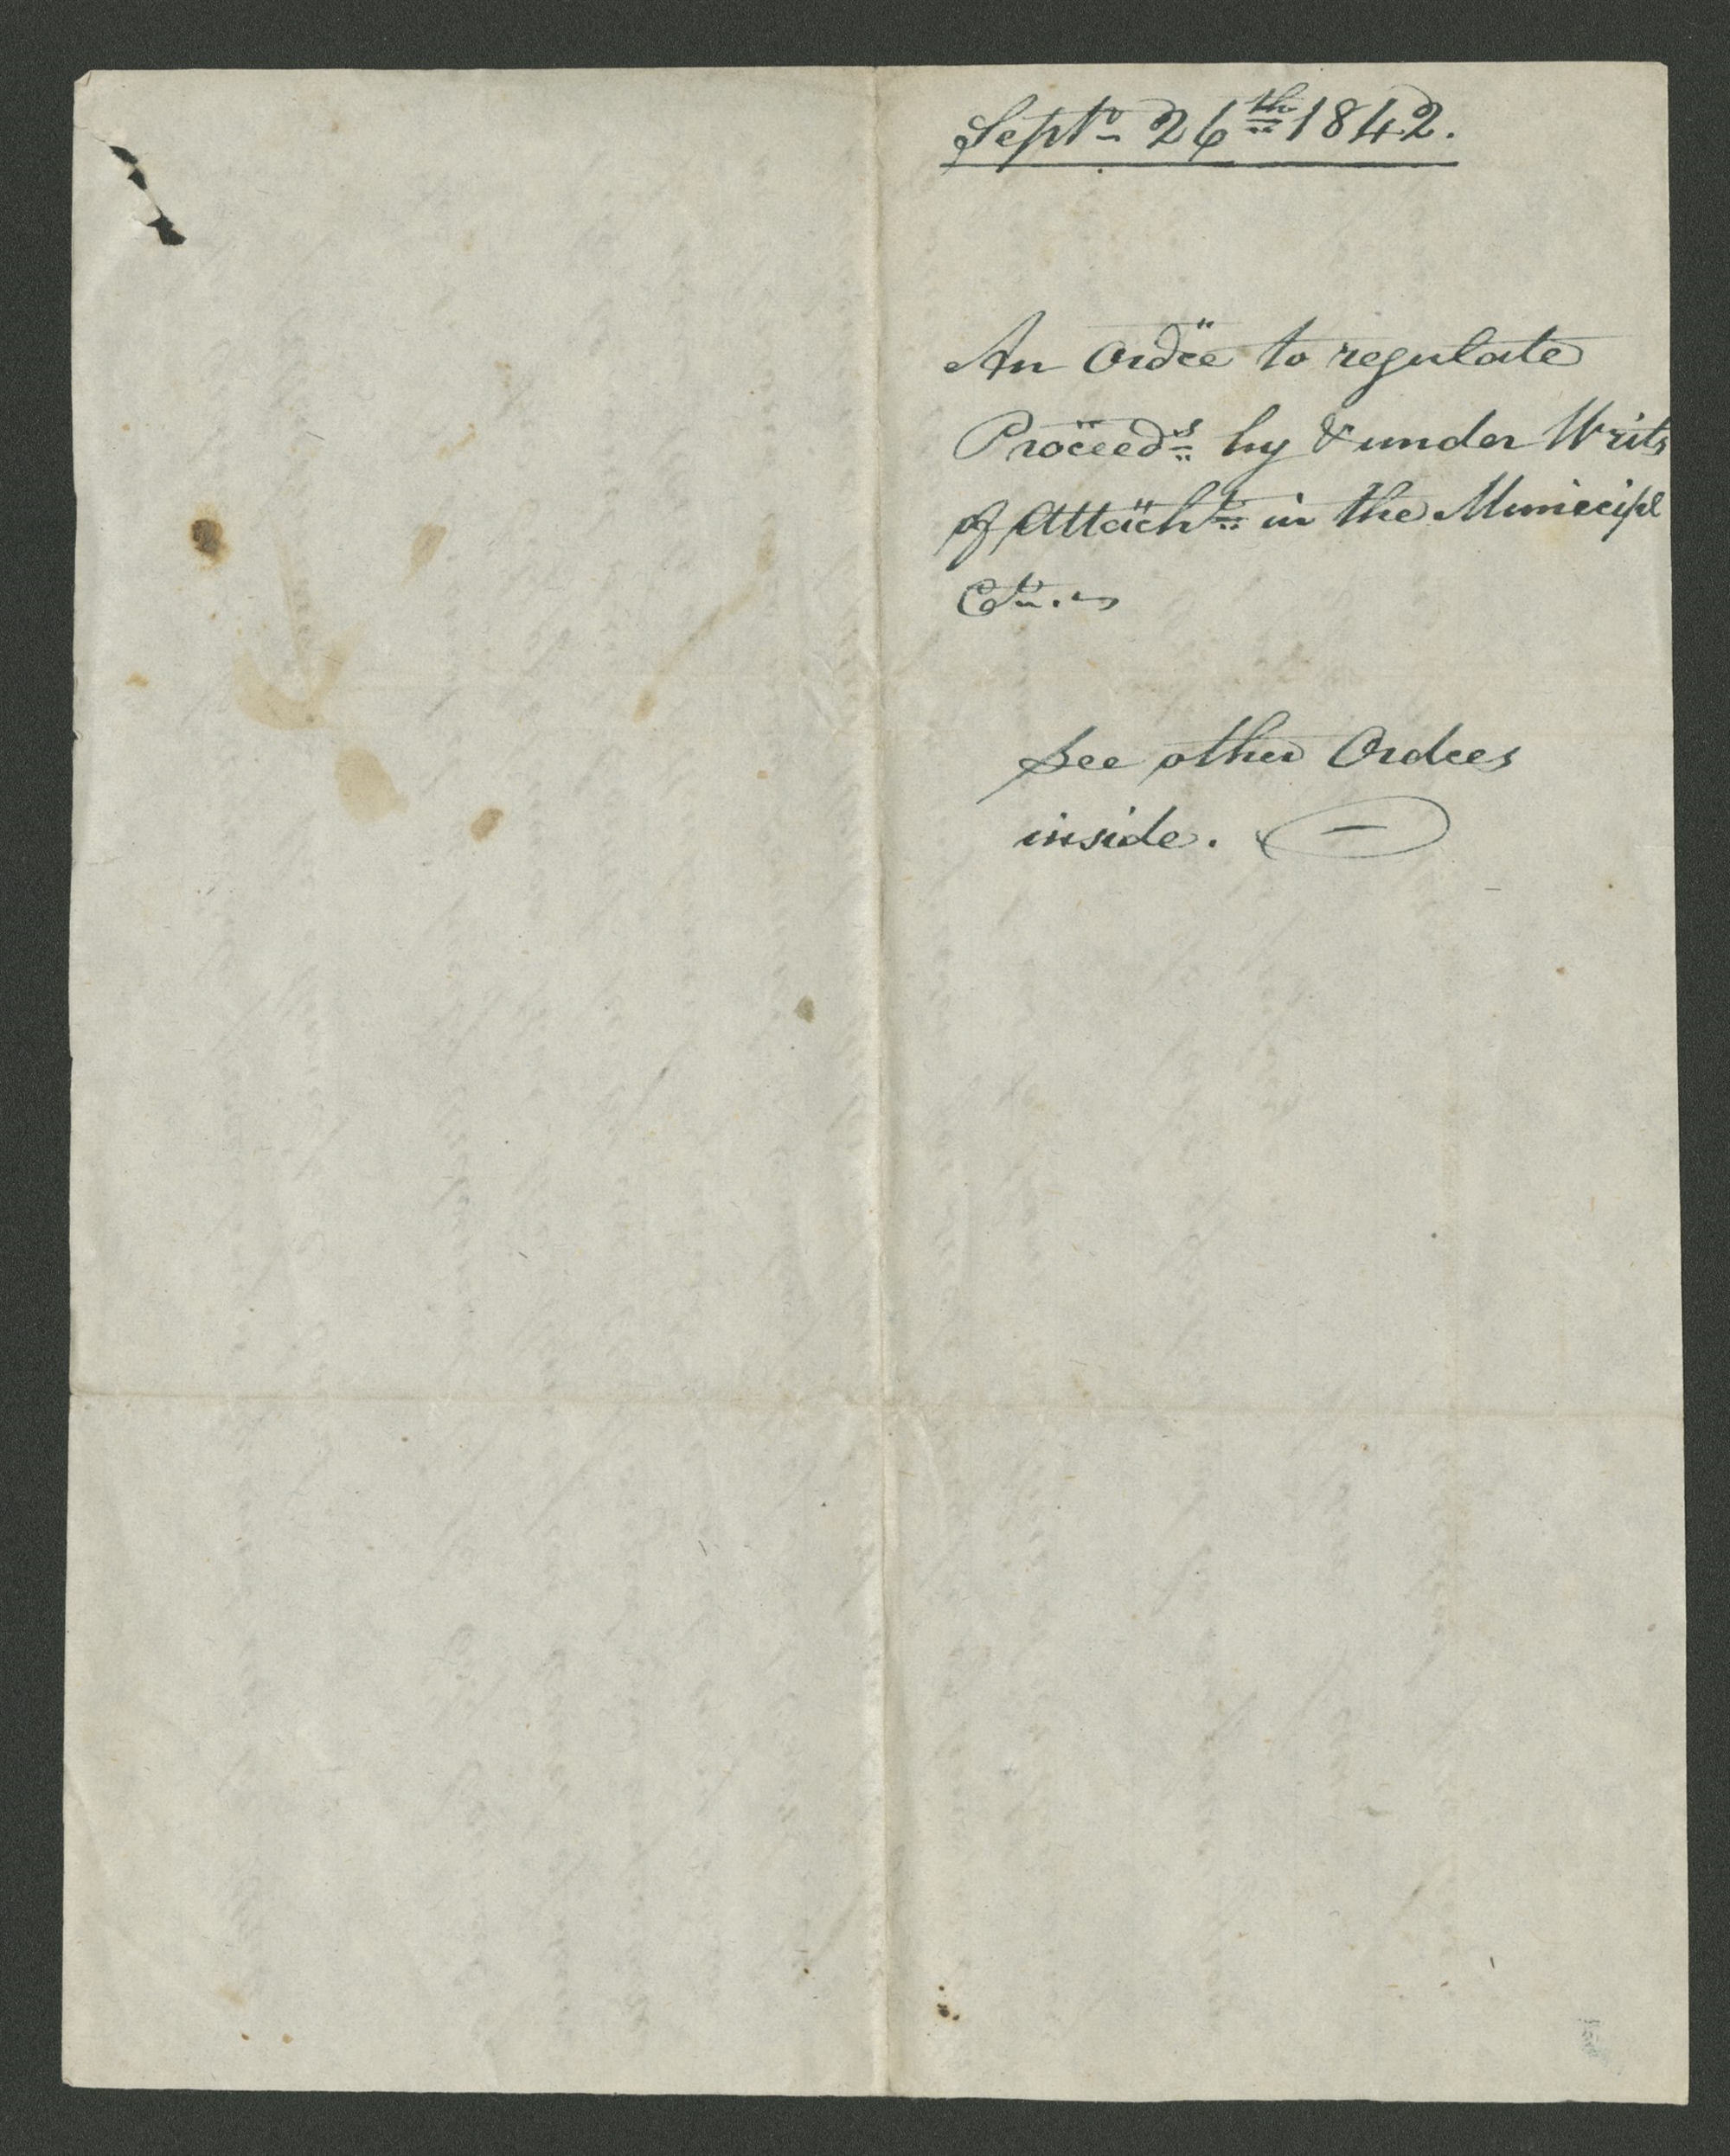 Sept. 26th 1842.
An Ordce to regulate
Proceeds by & under Writs
of Attacht in the Municipl
Ct.
See other Ordces
inside.